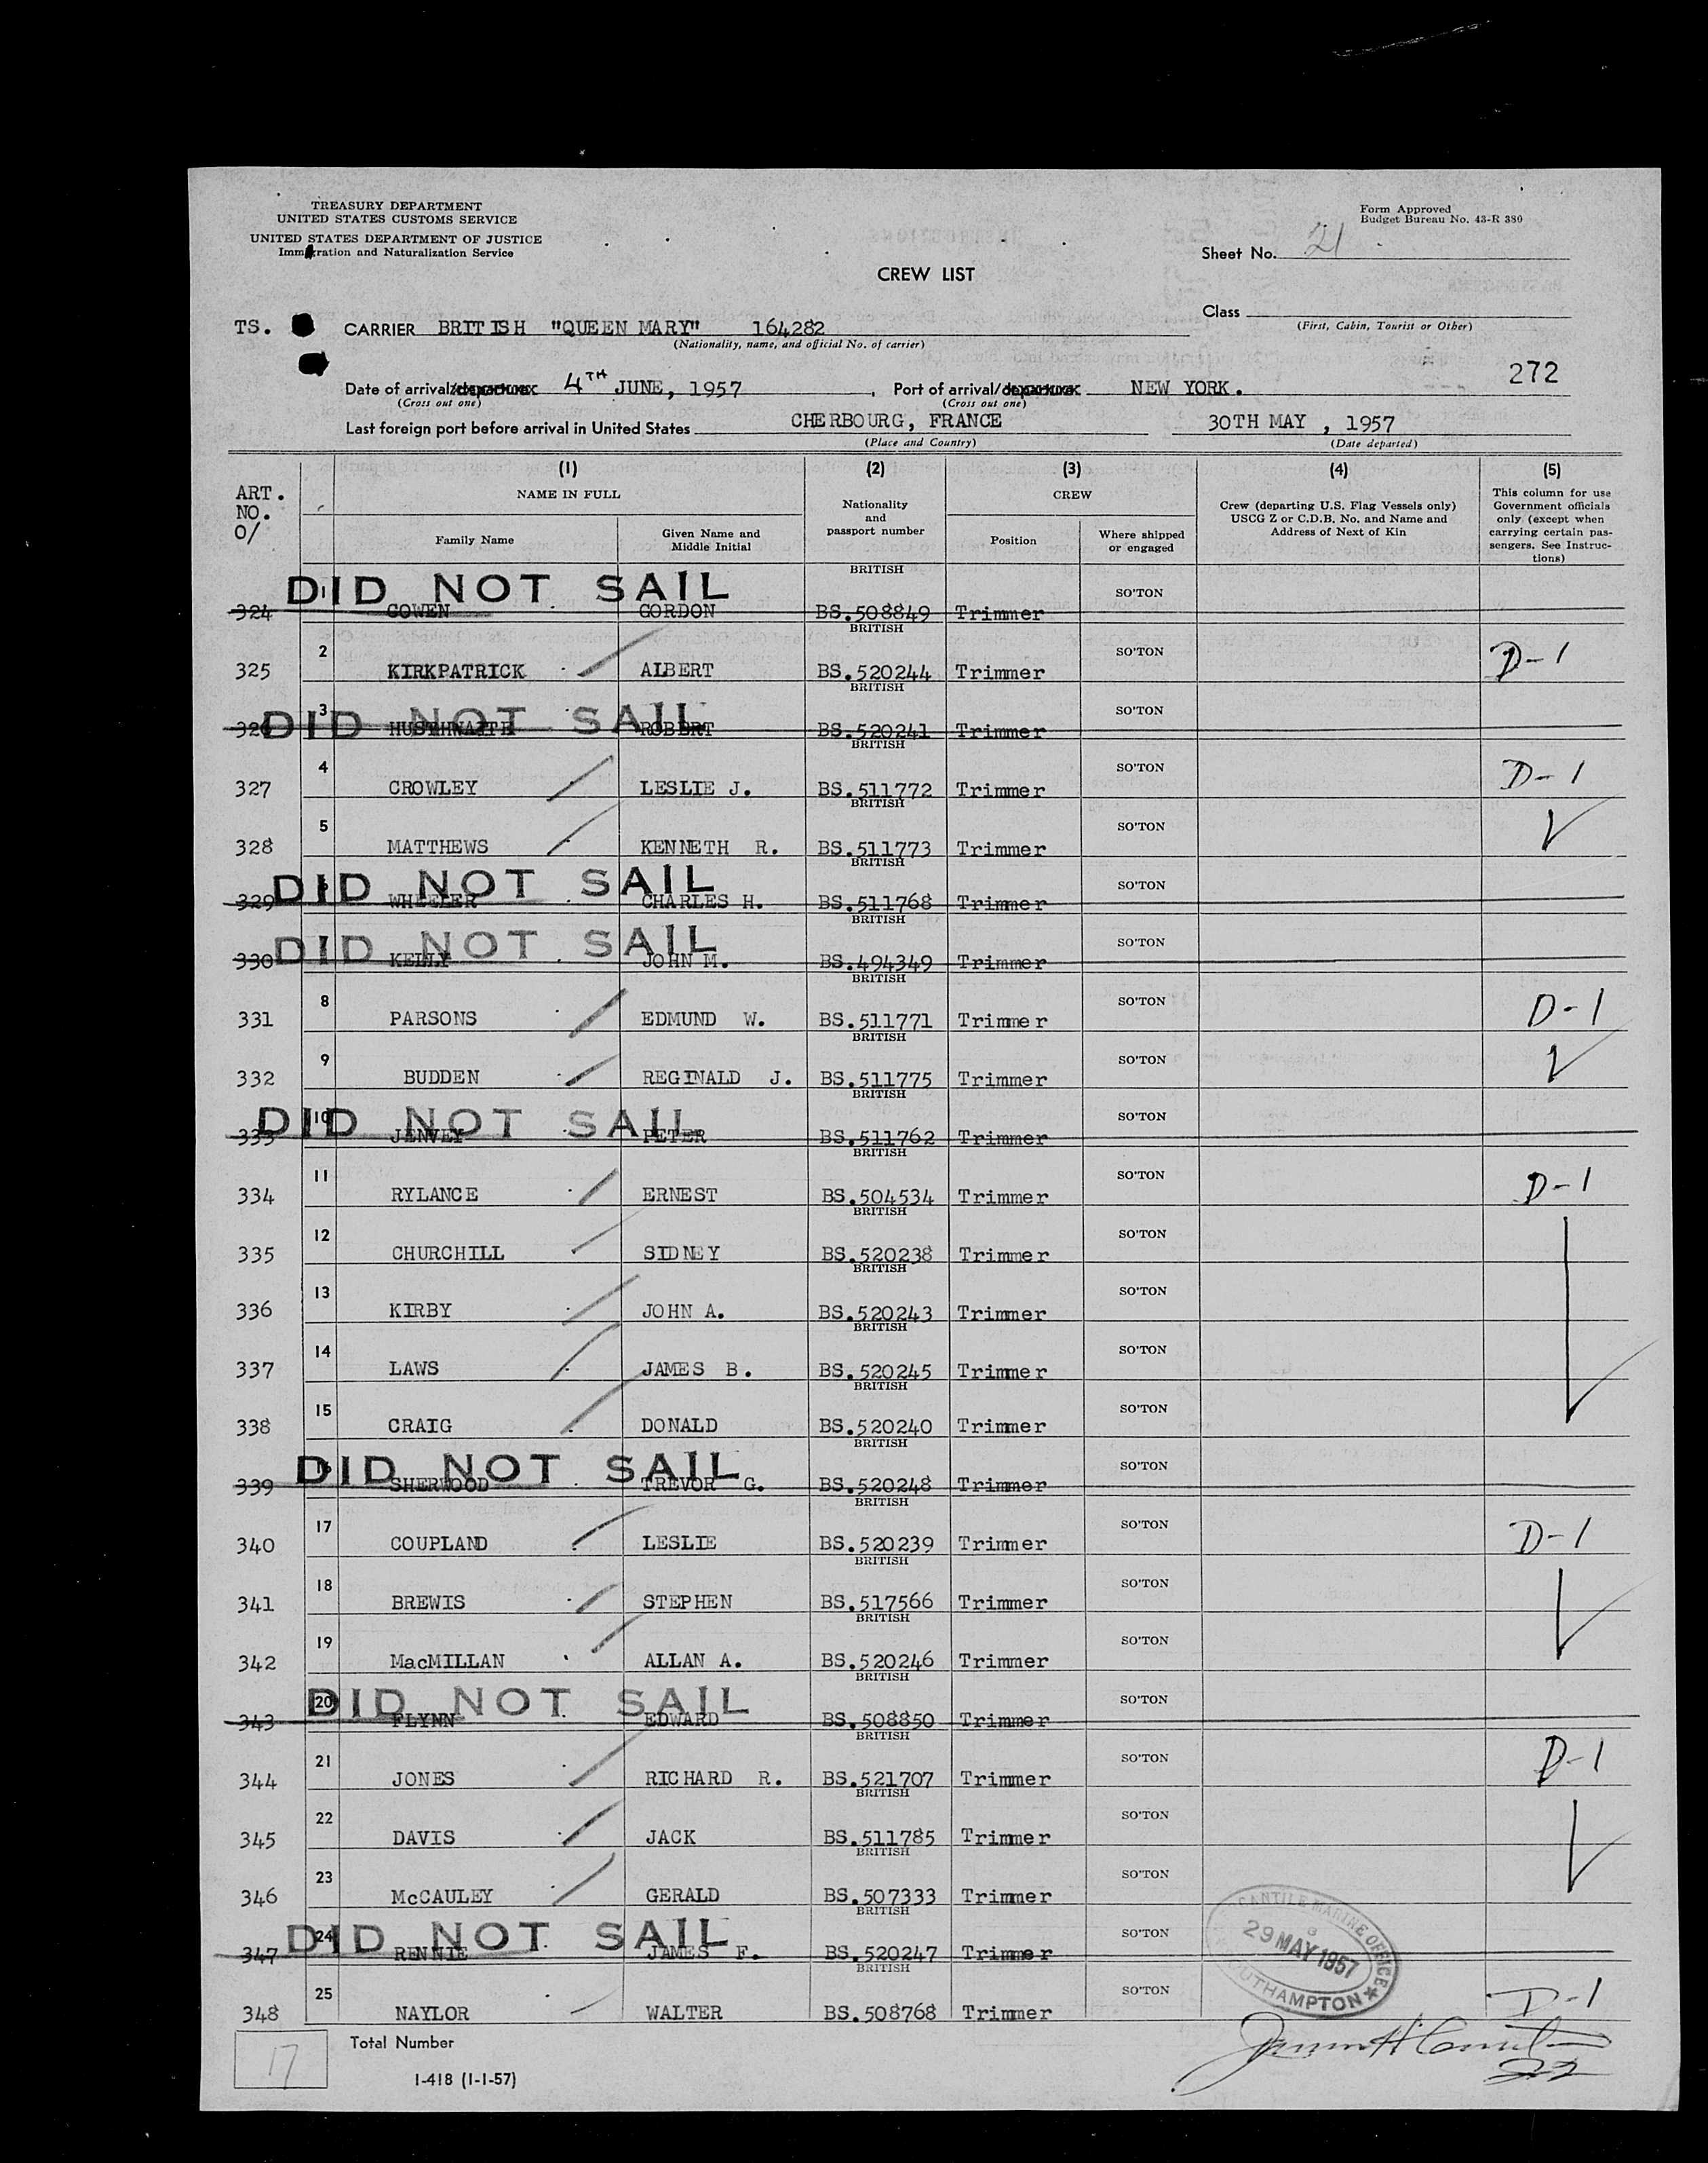 TREASURY DEPARTMENT
UNITED STATES CUSTOMS SERVICE
UNITED STATES DEPARTMENT OF JUSTICE
Immigration and Naturalization Service
Form Approved
Budget Bureau No. 43-R 380
Sheet No. 21
CREW LIST
Class
(First, Cabin, Tourist or Other)
TS. CARRIER BRITISH "QUEEN MARY" 164282
(Nationality, name, and official No. of carrier)
272
Date of arrival/departure 4TH JUNE, 1957, Port of arrival/departure NEW YORK.
(Cross out one) (Cross out one)
Last foreign port before arrival in United States CHERBOURG, FRANCE 30TH MAY, 1957
(Place and Country) (Date departed)
ART. NO. O/
(1) NAME IN FULL
Family Name
Given Name and Middle Initial
(2) Nationality and passport number
(3) CREW
Position
Where shipped or engaged
(4) Crew (departing U.S. Flag Vessels only) USCG Z or C.D.B. No. and Name and Address of Next of Kin
(5) This column for use Government officials only (except when carrying certain passengers. See Instructions)
DID NOT SAIL
324 1 COWEN GORDON BRITISH BS.508849 Trimmer SO'TON
325 2 KIRKPATRICK ALBERT BRITISH BS.520244 Trimmer SO'TON D-1
DID NOT SAIL
326 3 HUSTHWAITE ROBERT BRITISH BS.520241 Trimmer SO'TON
327 4 CROWLEY LESLIE J. BRITISH BS.511772 Trimmer SO'TON D-1
328 5 MATTHEWS KENNETH R. BRITISH BS.511773 Trimmer SO'TON
DID NOT SAIL
329 6 WHEELER CHARLES H. BRITISH BS.511768 Trimmer SO'TON
DID NOT SAIL
330 7 KELLY JOHN M. BRITISH BS.494349 Trimmer SO'TON
331 8 PARSONS EDMUND W. BRITISH BS.511771 Trimmer SO'TON D-1
332 9 BUDDEN REGINALD J. BRITISH BS.511775 Trimmer SO'TON
DID NOT SAIL
333 10 JENVEY PETER BRITISH BS.511762 Trimmer SO'TON
334 11 RYLANCE ERNEST BRITISH BS.504534 Trimmer SO'TON D-1
335 12 CHURCHILL SIDNEY BRITISH BS.520238 Trimmer SO'TON
336 13 KIRBY JOHN A. BRITISH BS.520243 Trimmer SO'TON
337 14 LAWS JAMES B. BRITISH BS.520245 Trimmer SO'TON
338 15 CRAIG DONALD BRITISH BS.520240 Trimmer SO'TON
DID NOT SAIL
339 16 SHERWOOD TREVOR G. BRITISH BS.520248 Trimmer SO'TON
340 17 COUPLAND LESLIE BRITISH BS.520239 Trimmer SO'TON D-1
341 18 BREWIS STEPHEN BRITISH BS.517566 Trimmer SO'TON
342 19 MacMILLAN ALLAN A. BRITISH BS.520246 Trimmer SO'TON
DID NOT SAIL
343 20 FLYNN EDWARD BRITISH BS.508850 Trimmer SO'TON
344 21 JONES RICHARD R. BRITISH BS.521707 Trimmer SO'TON D-1
345 22 DAVIS JACK BRITISH BS.511785 Trimmer SO'TON
346 23 McCAULEY GERALD BRITISH BS.507333 Trimmer SO'TON
DID NOT SAIL
347 24 RENNIE JAMES F. BRITISH BS.520247 Trimmer SO'TON
348 25 NAYLOR WALTER BRITISH BS.508768 Trimmer SO'TON D-1
CANTILE MARINE OFFICE
29 MAY 1957
UTHAMPTON
17 Total Number
I-418 (1-1-57)
22